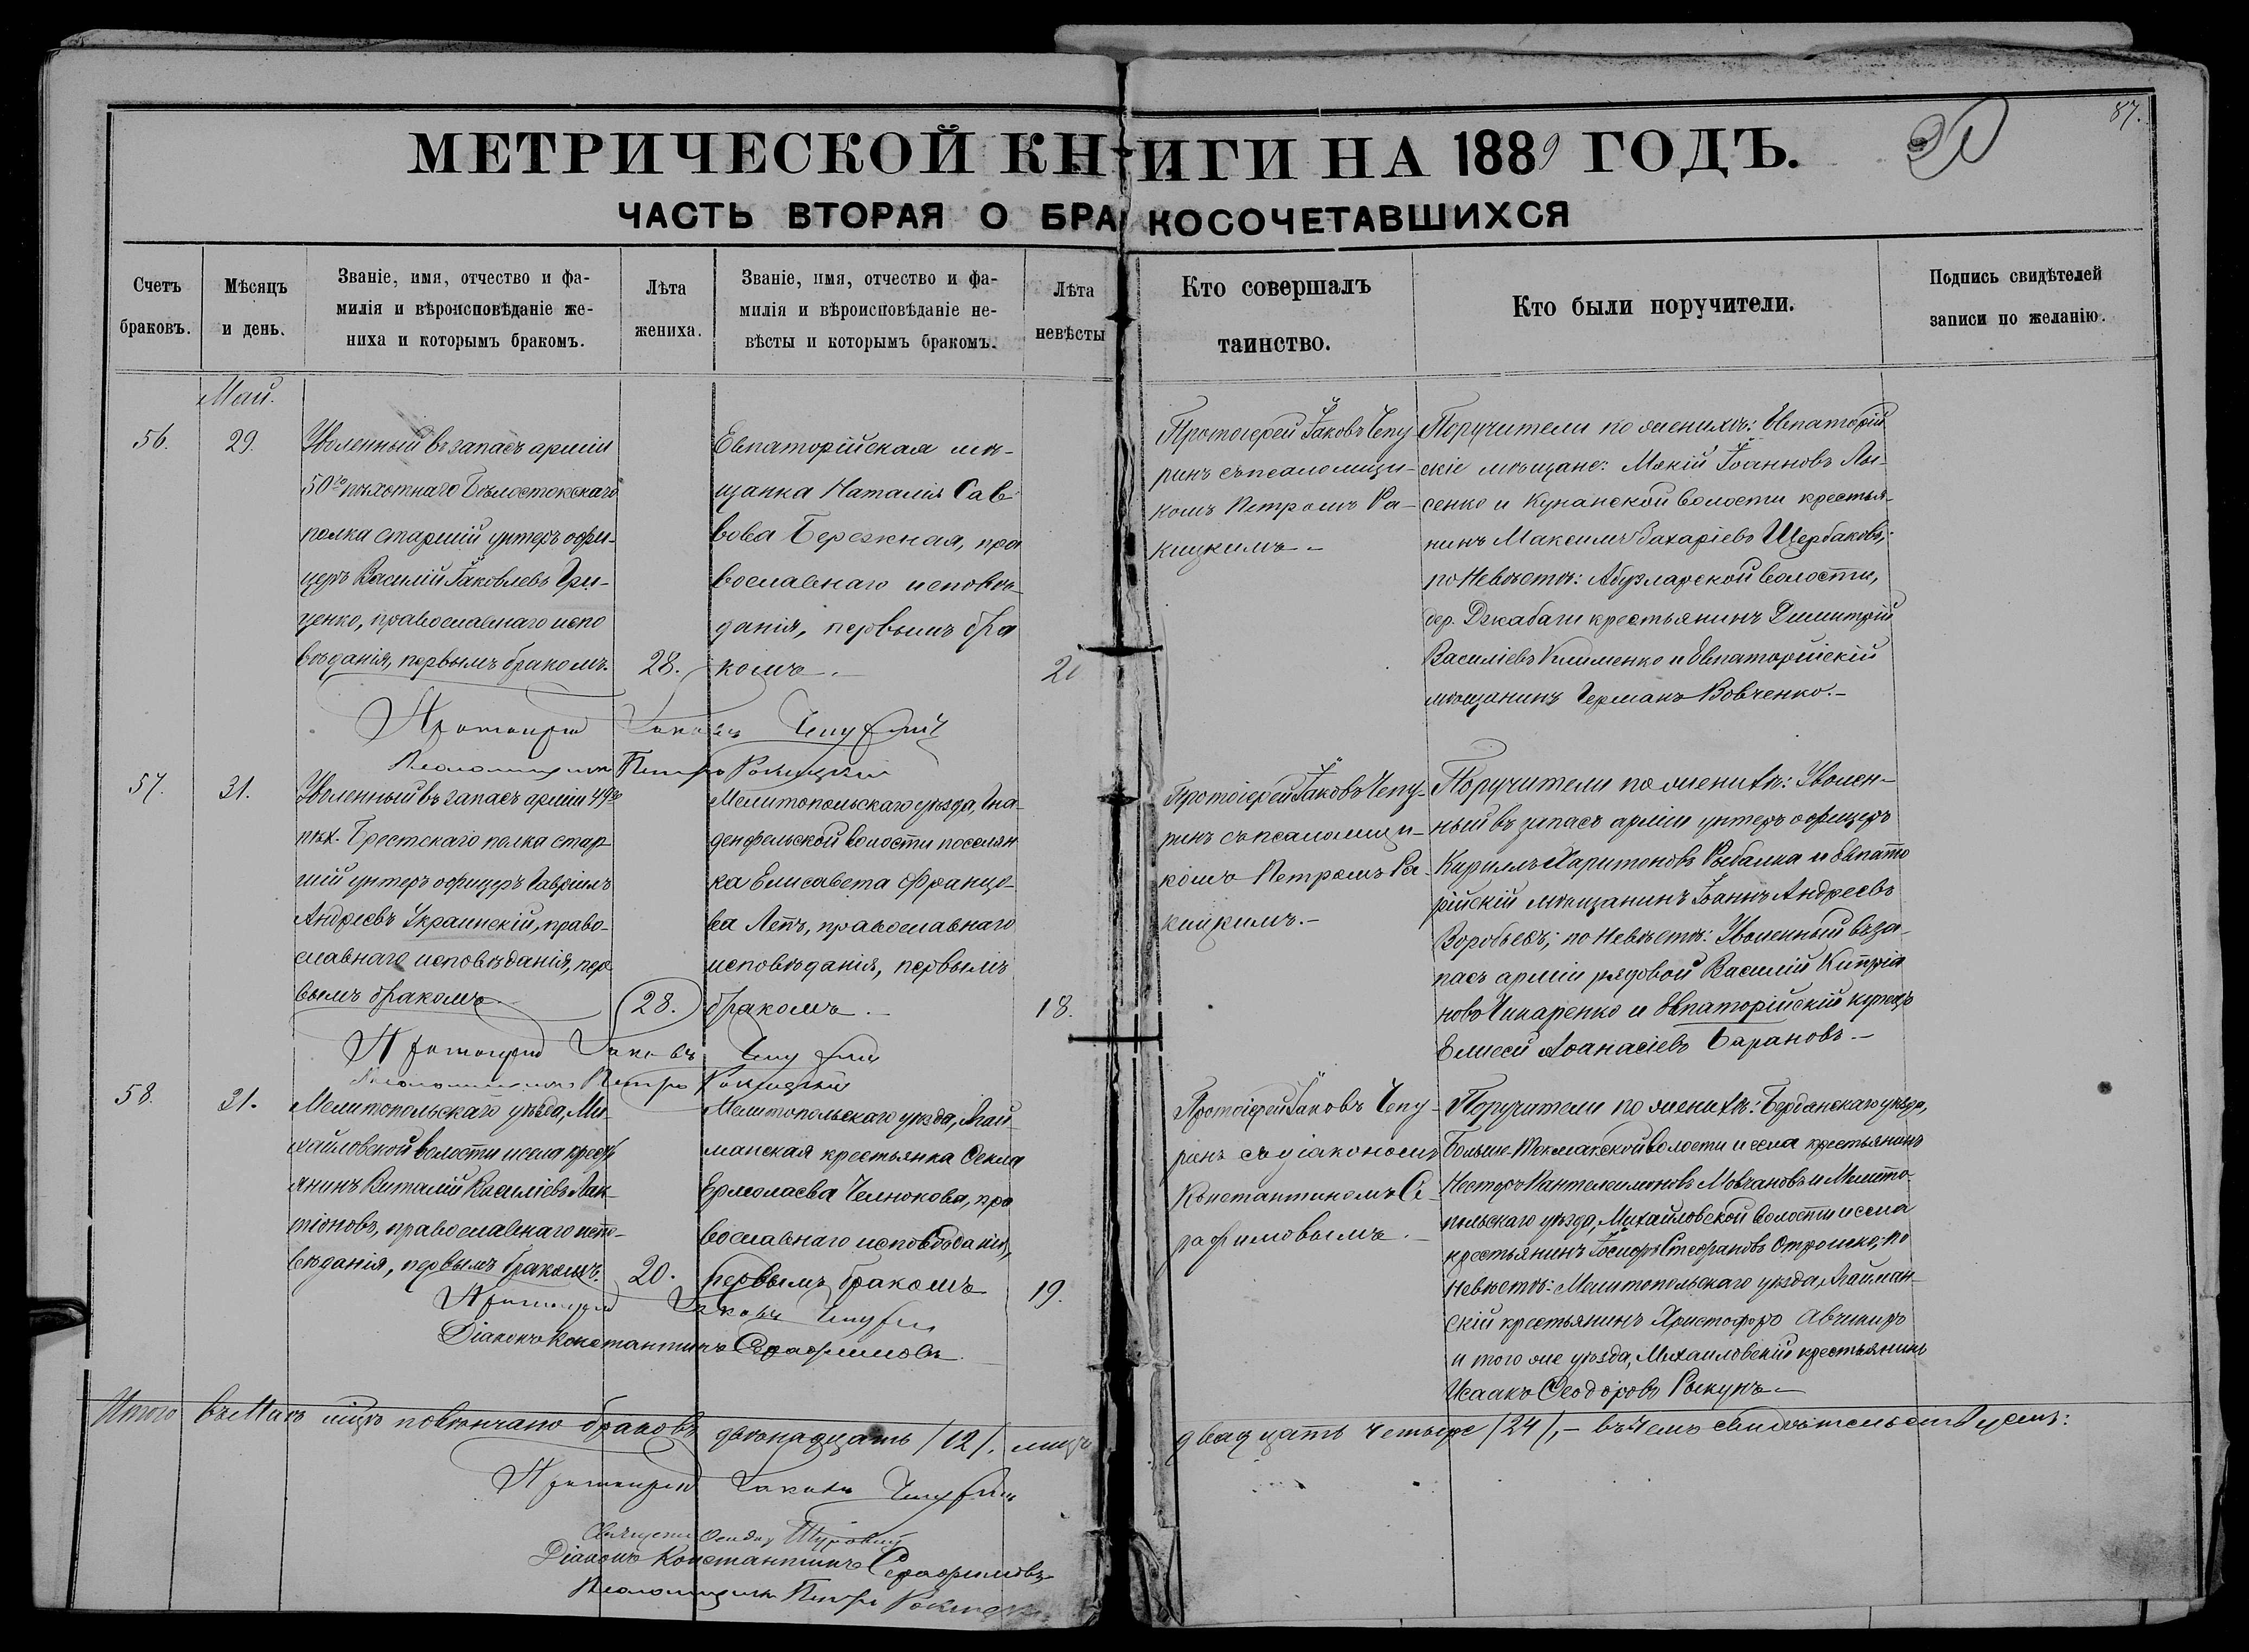 87.
МЕТРИЧЕСКОЙ КНИГИ НА 1889 ГОДЪ.
ЧАСТЬ ВТОРАЯ О БРАКОСОЧЕТАВШИХСЯ
Счетъ
браковъ.
Мѣсяцъ
и день.
Званіе, имя, отчество и фа-
милія и вѣроисповѣданіе же-
ниха и которымъ бракомъ.
Лѣта
жениха.
Званіе, имя, отчество и фа-
милія и вѣроисповѣданіе не-
вѣсты и которымъ бракомъ.
Лѣта
невѣсты
Кто совершалъ
таинство.
Кто были поручители.
Подпись свидѣтелей
записи по желанію.
Май.
56.
29.
Уволенный въ запасъ арміи
50го пѣхотнаго Бѣлостокскаго
полка старшій унтеръ офи-
церъ Василій Іаковлевъ Гри-
ценко, православнаго испо
вѣданія, первымъ бракомъ.
28.
Евпаторійская мѣ-
щанка Наталія Сав-
вова Бережная, пра
вославнаго исповѣ-
данія, первымъ бра
комъ.-
Протоіерей Іаковъ Чепу-
ринъ съ псаломщи-
комъ Петромъ Ра-
кицкимъ.-
Поручители по женихѣ: Евпаторій
скіе мѣщане: Мокій Іоанновъ Лы-
сенко и Кунанской волости крестья-
нинъ Максимъ Захаріевъ Щербаковъ;
по Невѣстѣ: Абузларской волости,
дер. Джабаги крестьянинъ Димитрій
Василіевъ Клименко и Евпаторійскій
мѣщанинъ Германъ Вовченко.-
Протоіерей Іаковъ Чепуринъ
Псаломщикъ Петръ Ракицкій
57.
31.
Уволенный въ запасъ арміи 49го
пѣх. Брестскаго полка стар
шій унтеръ офицеръ Гавріилъ
Андреевъ Украинскій, право-
славнаго исповѣданія, пер
вымъ бракомъ.
28.
Мелитопольскаго уѣзда, Гна-
денфельской волости поселян
ка Елисавета Францо-
ва Лепъ, православнаго
исповѣданія, первымъ
бракомъ.-
18.
Протоіерей Іаковъ Чепу-
ринъ съ псаломщи-
комъ Петромъ Ра-
кицкимъ.-
Поручители по женихѣ: Уволен-
ный въ запасъ арміи унтеръ офицеръ
Кириллъ Харитоновъ Рыбалка и Евпато
рійскій мѣщанинъ Іоаннъ Андреевъ
Воробьевъ; по Невѣстѣ: Уволенный въ за-
пасъ арміи рядовой Василій Кипріа
новъ Чикаренко и Евпаторійскій купецъ
Елисей Аѳанасіевъ Барановъ.-
Протоіерей Іаковъ Чепуринъ
Псаломщикъ Петръ Ракицкій
58.
31.
Мелитопольскаго уѣзда, Ми-
хайловской волости и села кресть
янинъ Виталій Василіевъ Лак-
тіоновъ, православнаго испо-
вѣданія, первымъ бракомъ.
20.
Мелитопольскаго уѣзда, Агай-
манская крестьянка Ѳекла
Ермолаева Челнокова, пра
вославнаго исповѣданія,
первымъ бракомъ
19.
Протоіерей Іаковъ Чепу-
ринъ съ діакономъ
Константиномъ Се-
рафимовымъ.-
Поручители по женихѣ: Бердянскаго уѣзда,
Больше-Токмакской волости и села крестьянинъ
Несторъ Пантелеимоновъ Мовчановъ и Мелито-
польскаго уѣзда, Михайловской волости и села
крестьянинъ Іосифъ Стефановъ Отрошко; по
Невѣстѣ: Мелитопольскаго уѣзда, Агайман-
скій крестьянинъ Христофоръ
и того же уѣзда, Михаиловскій крестьянинъ
Исаакъ Ѳеодоровъ Рыкунъ.-
Протоіерей Іаковъ Чепуринъ
Діаконъ Константинъ Серафимовъ.
Итого въ Маѣ мцѣ повѣнчано браковъ двѣнадцать /12/, лицъ двадцать четыре /24/,- въ чемъ свидѣтельствуемъ:
Протоіерей Іаковъ Чепуринъ
Діаконъ Константинъ Серафимовъ
Псаломщикъ Петръ Ракицкій